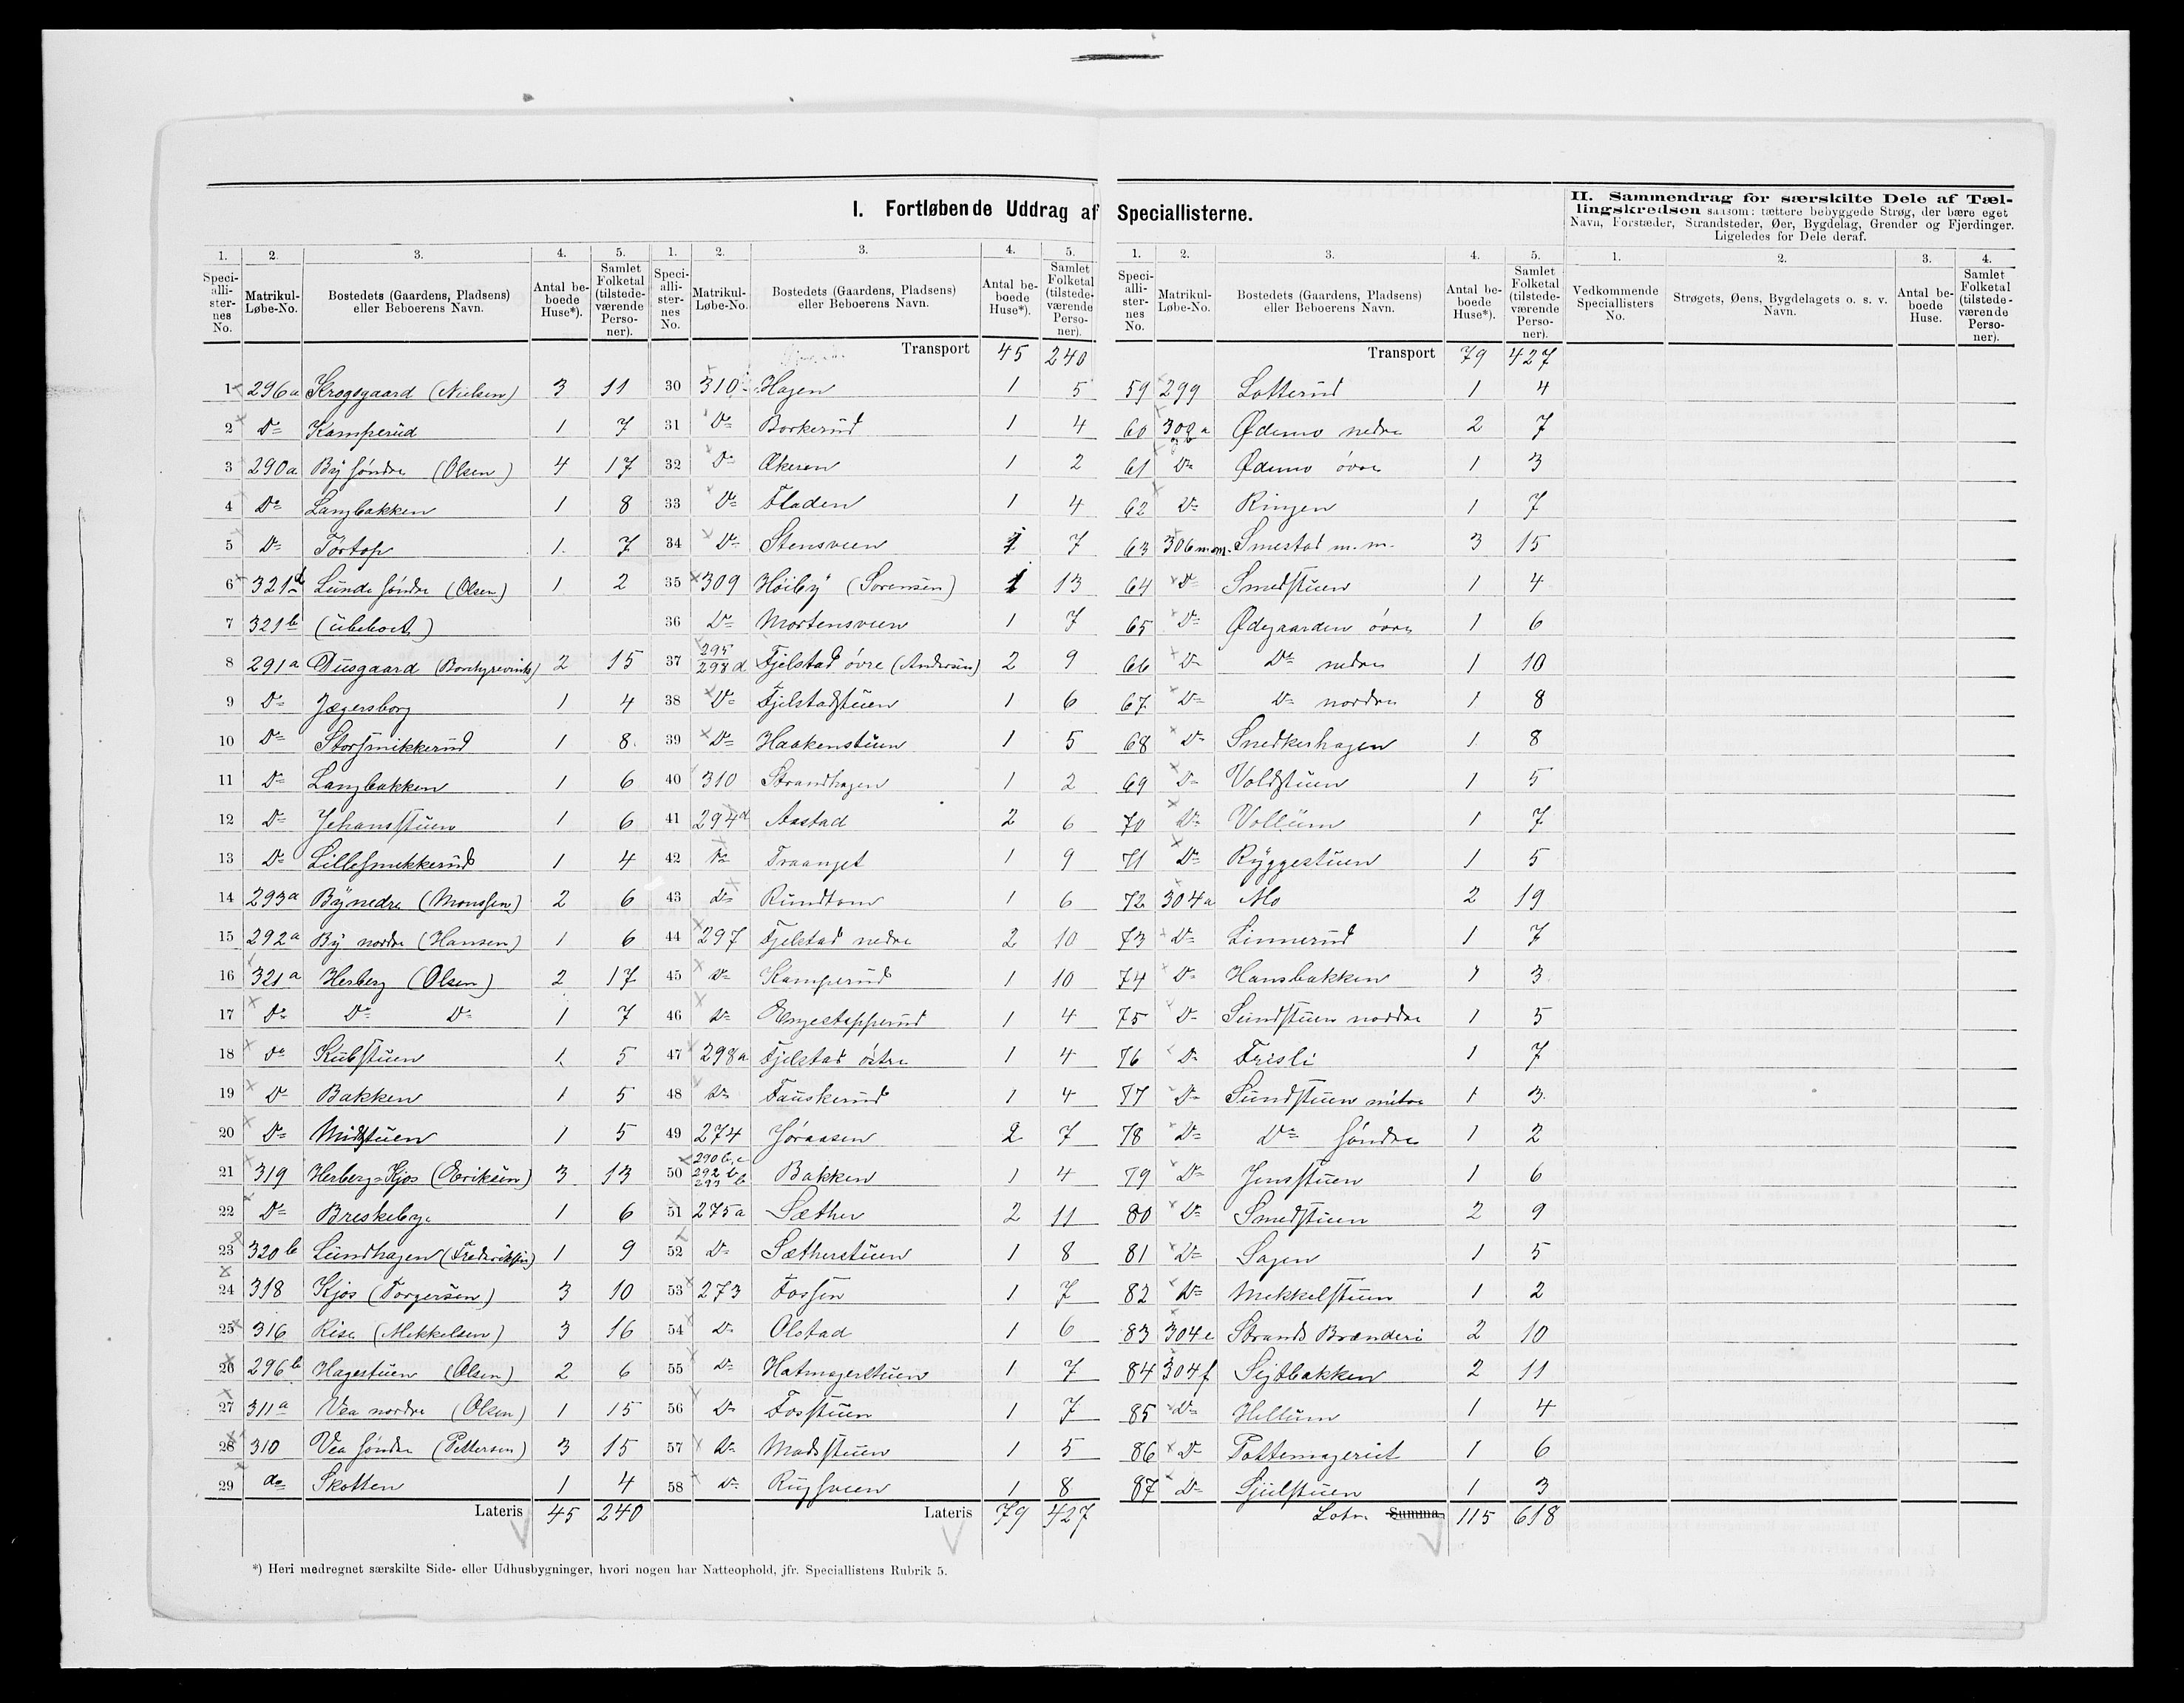 I. Fortløbende Uddrag af Speciallisterne.
II. Sammendrag for særskilte Dele af Tællingskredsen saasom: tættere bebyggede Strøg, der bære eget
Navn, Forstæder, Strandsteder, Øer, Bygdelag, Grender og Fjerdinger.
Ligeledes for Dele deraf.
1. 2. 3. 4. 5.
Speciallisternes No. Matrikul-Løbe-No. Bostedets (Gaardens, Pladsens) eller Beboerens Navn. Antal beboede Huse*). Samlet Folketal (tilstedeværende Personer).
1 296a Krogsgaard (Nielsen) 3 11
2 Do Kamperud 1 7
3 290a By søndre (Olsen) 4 17
4 Do Langbakken 1 8
5 Do Tørtop 1 7
6 321d Lunde søndre (Olsen) 1 2
7 321b (ubeboet)
8 291a Dusgaard 2 15
9 Do Jægersborg 1 4
10 Do Storsmikkerud 1 8
11 Do Langbakken 1 6
12 Do Johansstuen 1 6
13 Do Lillesmekkerud 1 4
14 293a By nedre (Monssen) 2 6
15 292a By nordre (Hansen) 1 6
16 321a Herberg (Olsen) 2 17
17 Do Do Do 1 7
18 Do Kubstuen 1 5
19 Do Bakken 1 5
20 Do Midtstuen 1 5
21 319 Herberg-Kjos (Eriksen) 3 13
22 Do Breskebye 1 6
23 320b Lundhagen (Frederiksen) 1 9
24 318 Kjos (Torgersen) 3 10
25 316 Rise (Mekkelsen) 3 16
26 296b Hagestuen (Olsen) 2 6
27 311a Vea nordre (Olsen) 1 15
28 310 Vea søndre (Pettersen) 3 15
29 do Skotten 1 4
Lateris 45 240
1. 2. 3. 4. 5.
Speciallisternes No. Matrikul-Løbe-No. Bostedets (Gaardens, Pladsens) eller Beboerens Navn. Antal beboede Huse*). Samlet Folketal (tilstedeværende Personer).
Transport 45 240
30 310 Hagen 1 5
31 Do Borkerud 1 4
32 Do Ekeren 1 2
33 Do Fladen 1 4
34 Do Stensveen 1 7
35 309 Høiby (Sorensen) 1 13
36 Do Mortensveen 1 7
37 295 298d Fjelstad øvre (Andersen) 2 9
38 Do Fjelstadstuen 1 6
39 Do Haakenstuen 1 5
40 310 Strandhagen 1 2
41 294d Aastad 2 6
42 Do Traanget 1 9
43 Do Rundtom 1 6
44 297 Fjelstad nedre 2 10
45 Do Kamperud 1 10
46 Do Engestapperud 1 4
47 298a Fjelstad østre 1 4
48 Do Fauskerud 1 4
49 274 Jøraasen 2 7
50 290b,c 292b 293b Bakken 1 4
51 275a Sæther 2 11
52 Do Sætherstuen 1 8
53 273 Fossen 1 7
54 Do Olstad 1 6
55 Do Hatmagerstuen 1 7
56 Do Fosstuen 1 7
57 Do Madsstuen 1 5
58 Do Rugsveen 1 8
Lateris 79 427
1. 2. 3. 4. 5.
Speciallisternes No. Matrikul-Løbe-No. Bostedets (Gaardens, Pladsens) eller Beboerens Navn. Antal beboede Huse*). Samlet Folketal (tilstedeværende Personer).
Transport 79 427
59 299 Lotterud 1 4
60 302a Ødemo nedre 2 7
61 Do Ødemo øvre 1 3
62 Do Ringen 1 7
63 306 m.m. Smestad m.m. 3 15
64 Do Smedstuen 1 4
65 Do Ødegaarden øvre 1 6
66 Do Do nedre 1 10
67 Do Do nordre 1 8
68 Do Snedkerhagen 1 8
69 Do Voldstuen 1 5
70 Do Vollum 1 7
71 Do Ryggestuen 1 5
72 304a Mo 2 19
73 Do Linnerud 1 7
74 Do Hansbakken 1 3
75 Do Sundstuen nordre 1 5
76 Do Frisli 1 7
77 Do Sundstuen mitre 1 3
78 Do Do søndre 1 2
79 Do Jensstuen 1 6
80 Do Smedstuen 2 9
81 Do Sagen 1 5
82 Do Mekkelstuen 1 2
83 304e Strands Brænderi 2 10
84 304f Sejdbakken 2 11
85 Do Hellum 1 4
86 Do Pottemageriet 1 6
87 Do Sjulstuen 1 3
Latr. Summa 115 618
1. 2. 3. 4.
Vedkommende Speciallisters No. Strøgets, Øens, Bygdelagets o. s. v. Navn. Antal beboede Huse. Samlet Folketal (tilstedeværende Personer).
*) Heri medregnet særskilte Side- eller Udhusbygninger, hvori nogen har Natteophold, jfr. Speciallistens Rubrik 5.